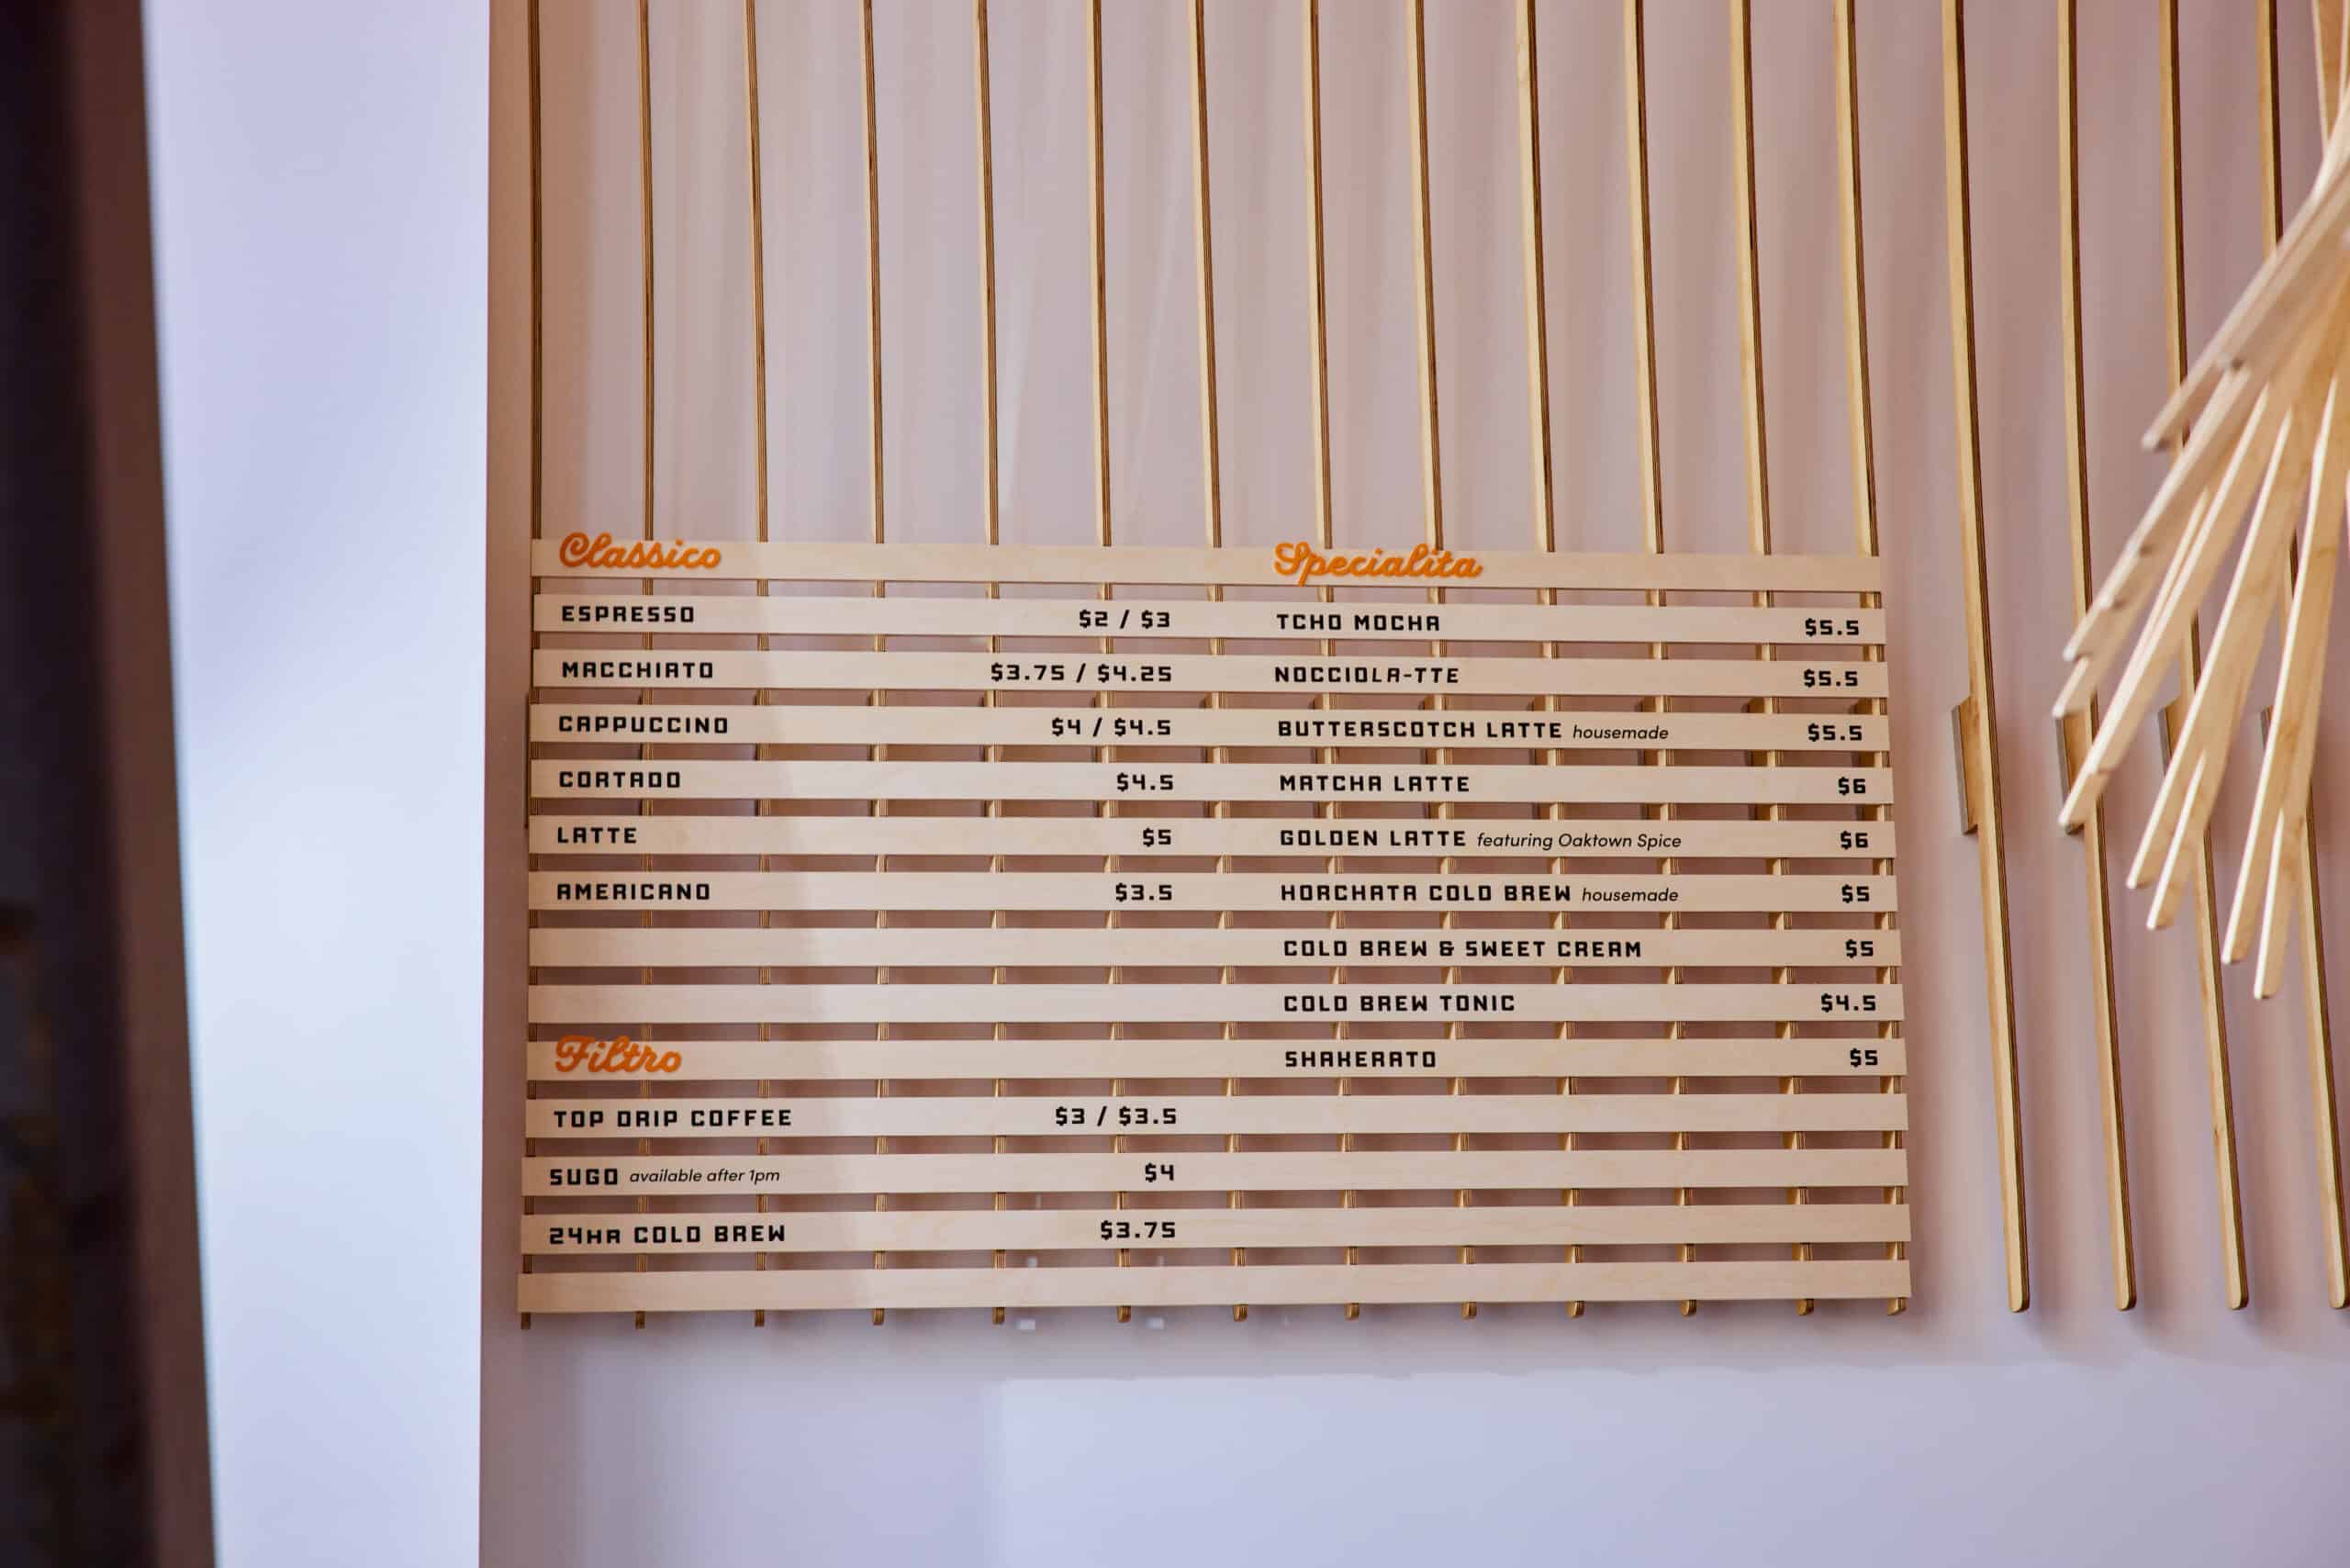 Classico
ESPRESSO $2 / $3
MACCHIATO $3.75 / $4.25
CAPPUCCINO $4 / $4.5
CORTADO $4.5
LATTE $5
AMERICANO $3.5
Filtro
TOP DRIP COFFEE $3 / $3.5
SUGO available after 1pm $4
24HR COLD BREW $3.75
Specialita
TCHO MOCHA $5.5
NOCCIOLA-TTE $5.5
BUTTERSCOTCH LATTE housemade $5.5
MATCHA LATTE $6
GOLDEN LATTE featuring Oaktown Spice $6
HORCHATA COLD BREW housemade $5
COLD BREW & SWEET CREAM $5
COLD BREW TONIC $4.5
SHAKERATO $5